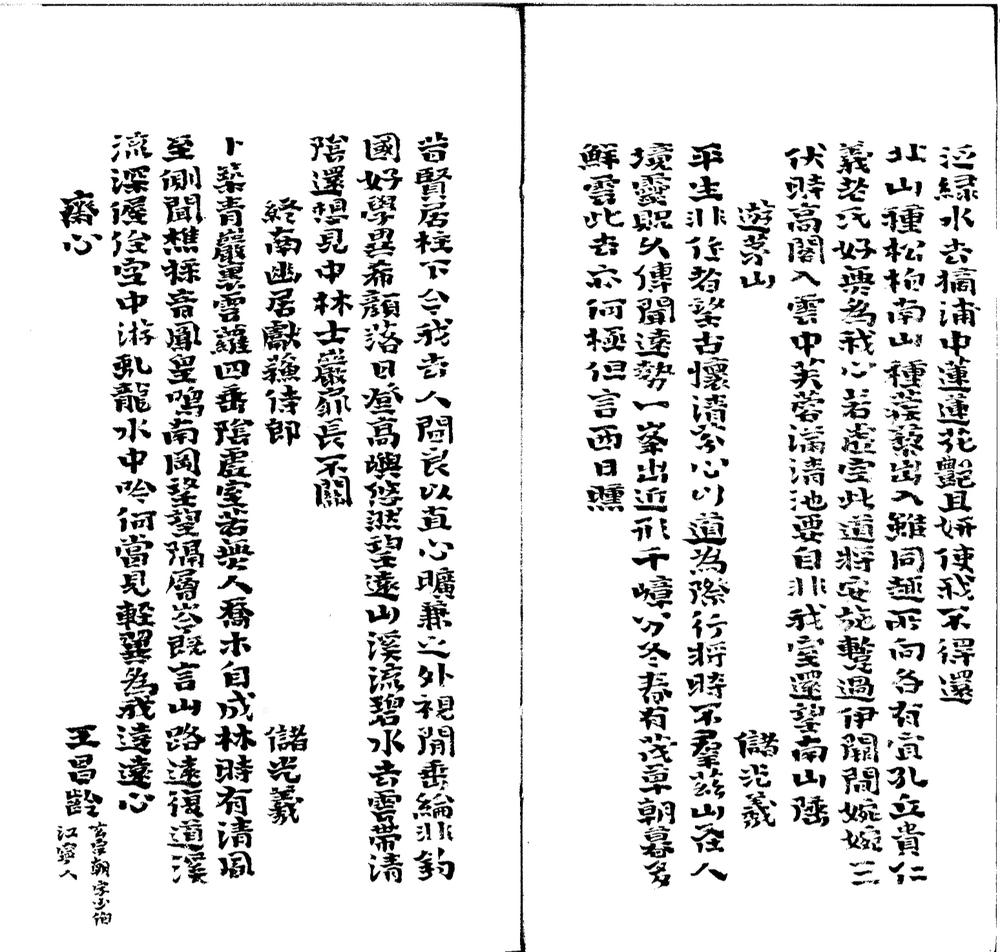 泛綠水去摘浦中蓮蓮花艷且姸使我不得還
北山種松柏南山種蒺藜出入雖同趣所向各有宜孔丘貴仁
義老氏好無為我心若虛空此道將安施暫過伊闕間婉婉三
伏時高閣入雲中芙蓉滿清池要自非我室還望南山陲
遊茅山
儲光羲
平生非作者望古懷清芬心以道為際行將時不羣茲山在人
境靈貺久傳聞遠勢一峯出近形千嶂分冬春有茂草朝暮多
鮮雲此去亦何極但言西日曛
昔賢居柱下今我去人間良以直心曠兼之外視閒垂綸非釣
國好學異希顏落日登高嶼悠然望遠山溪流碧水去雲帶清
陰還想見中林士巖扉長不關
終南幽居獻蘇侍郎
儲光羲
卜築青巖裏雲蘿四垂陰虛室若無人喬木自成林時有清風
至側聞樵採音鳳皇鳴南岡望望隔層岑既言山路遠復道溪
流深偓佺空中游虬龍水中吟何當見輕翼為我達遠心
齋心
王昌齡
玄宗朝字少伯
江寧人